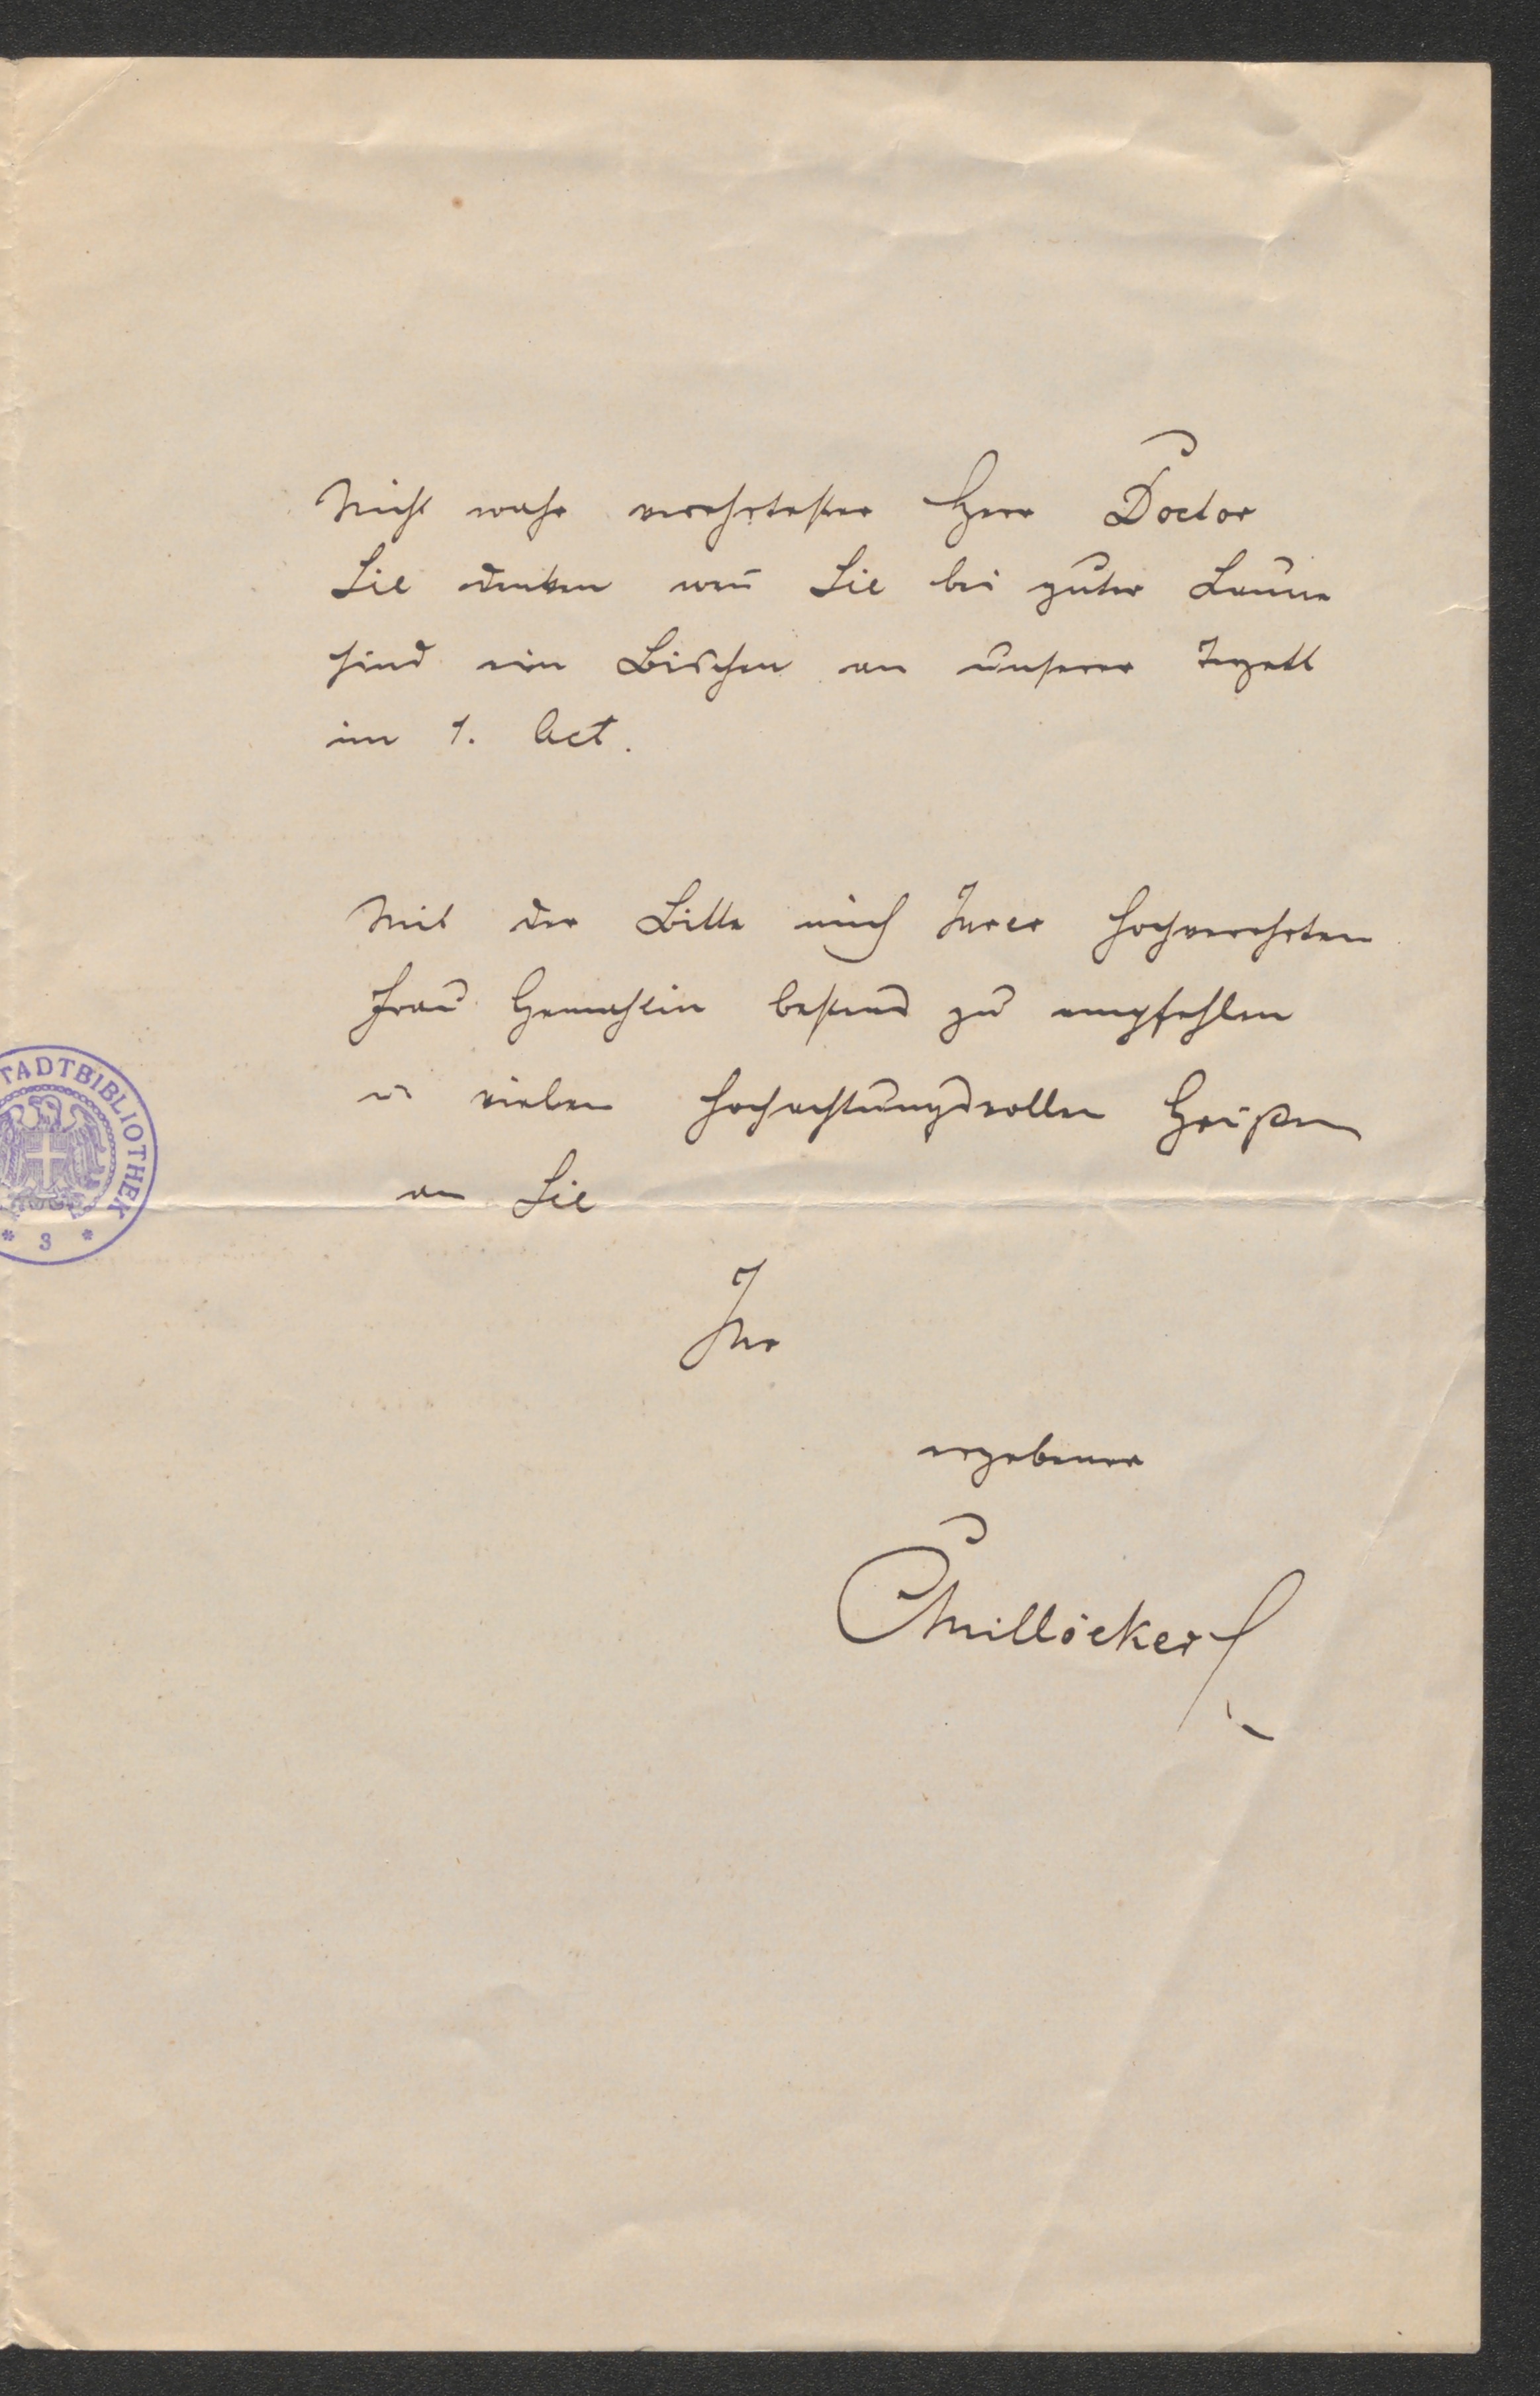 Nicht wahr verehrtester Herr Doctor
Sie denken weñ Sie bei guter Laune
sind ein Bischen an unserer Terzett
im 1. Act.
Mit der Bitte mich Ihrer hochverehrten
Frau Gemahlin bestens zu empfehlen
u vielen hochachtungsvollen Grüßen
an Sie
Ihr
ergebener
CMillöcker
TADTBIBLIOTHEK
* 3 *